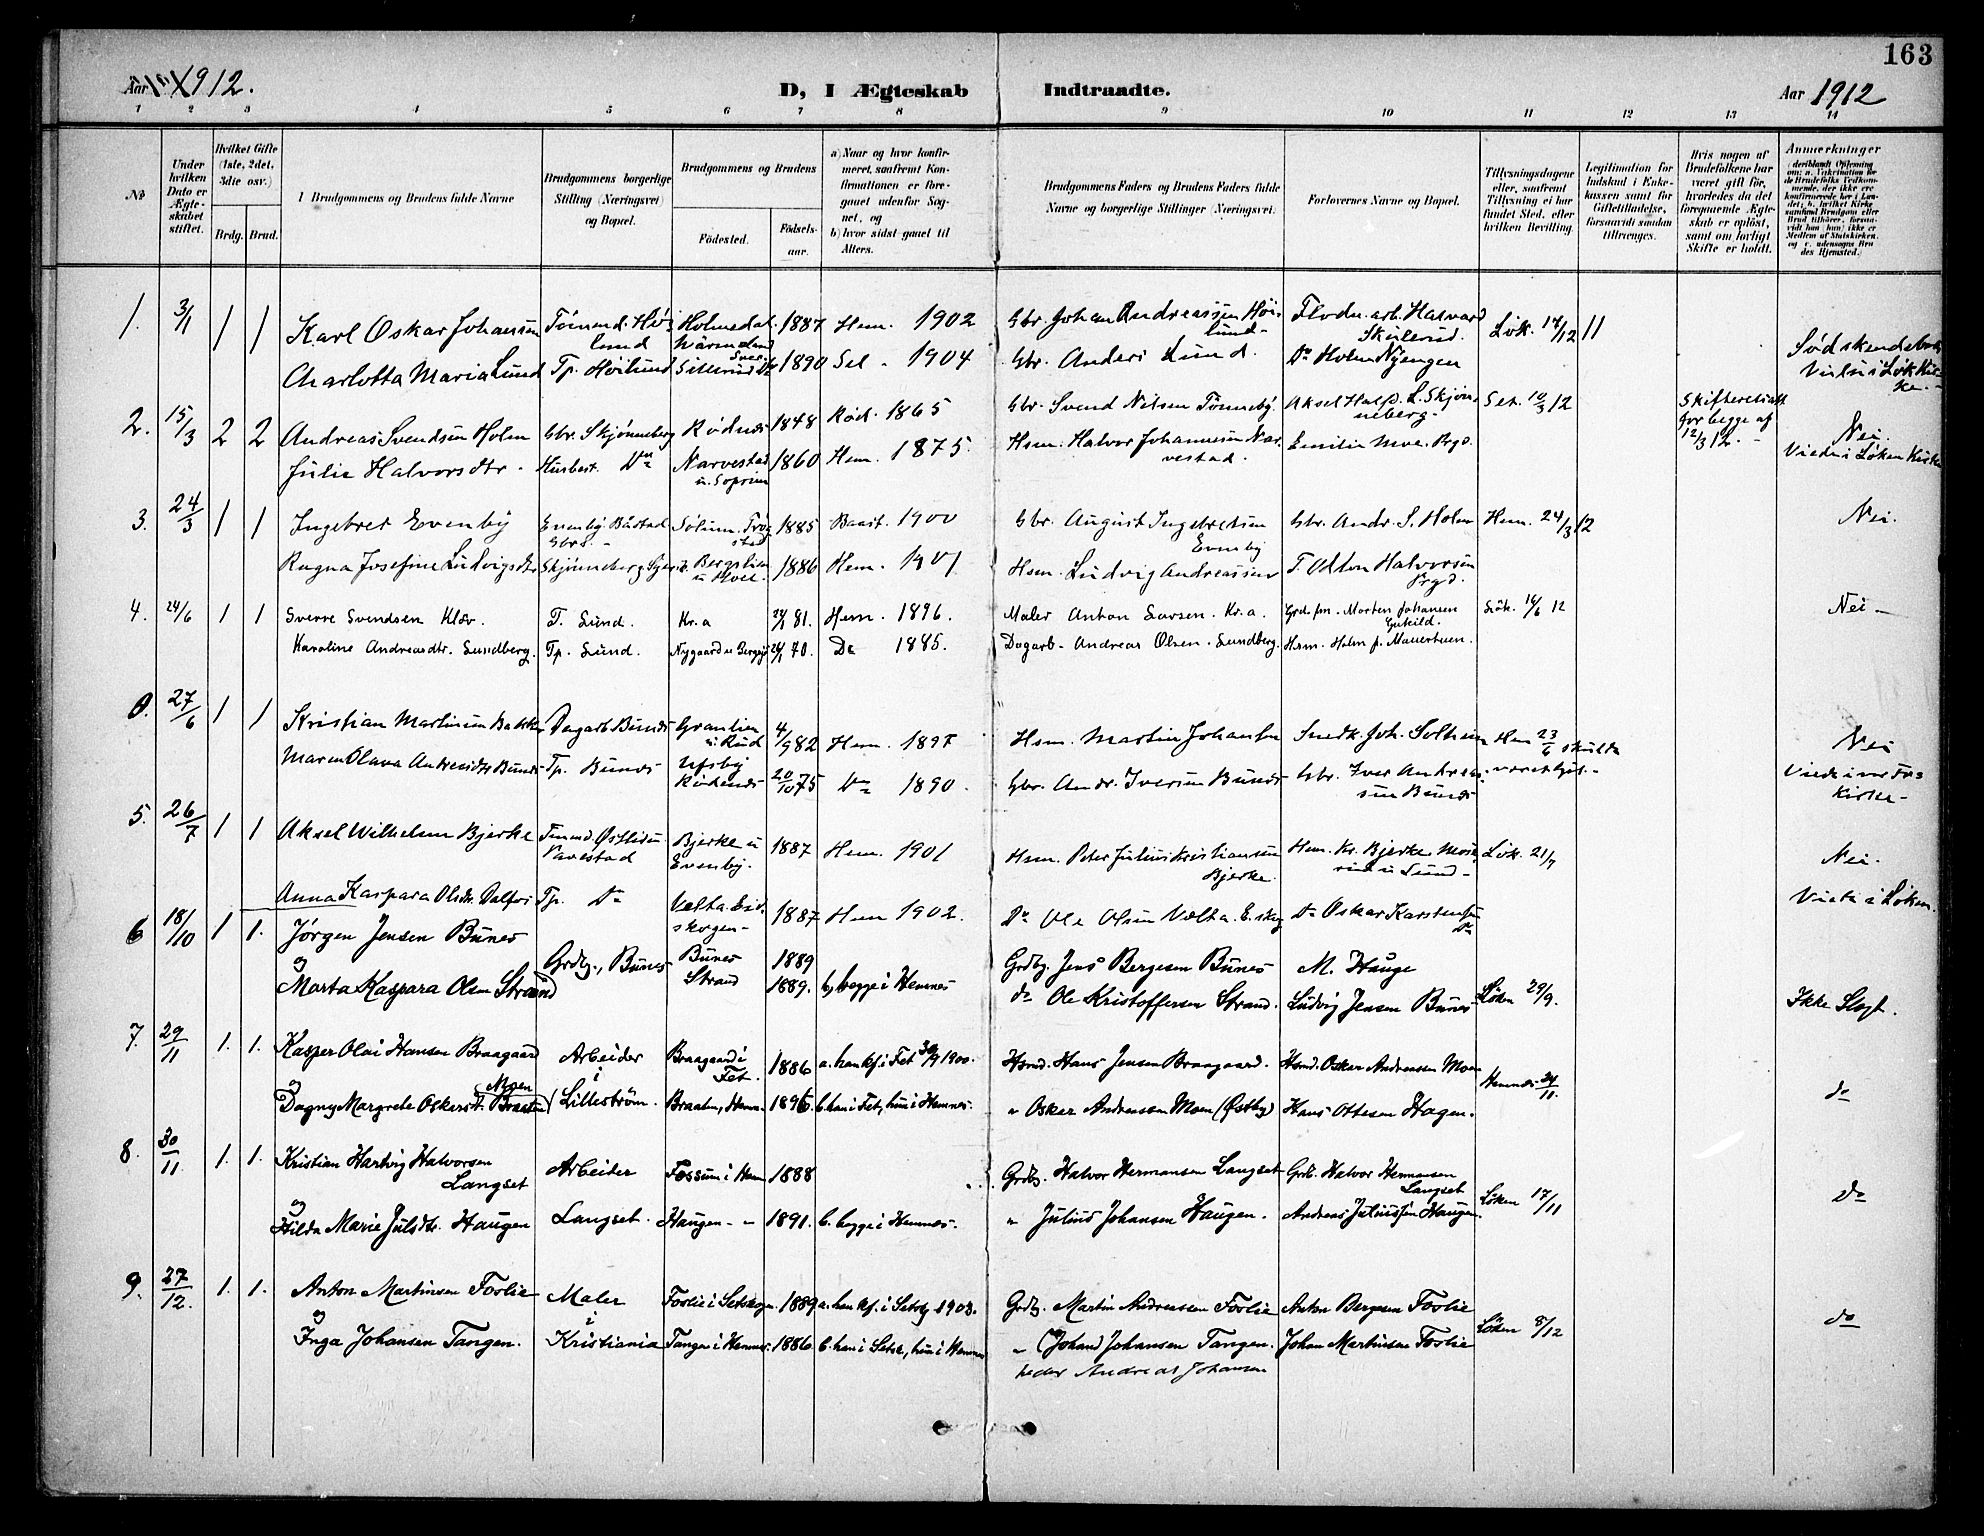 163
Aar 1912.
D, I Ægteskab Indtraadte.
Aar 1912
1 2 3 4 5 6 7 8 9 10 11 12 13 14
No
Under hvilken Dato er Ægteskabet stiftet.
Hvilket Gifte (1ste, 2det, 3die osv.)
Brdg. Brud.
1 Brudgommens og Brudens fulde Navne
Brudgommens borgerlige Stilling (Næringsvei) og Bopæl.
Brudgommens og Brudens
Fødested.
Fødselsaar.
a) Naar og hvor konfirmeret, saafremt Konfirmationen er foregaaet udenfor Sognet, og
b) hvor sidst gaaet til Alters.
Brudgommens Faders og Brudens Faders fulde Navne og borgerlige Stillinger (Næringsvei)
Forlovernes Navne og Bopæl.
Tillysningsdagene eller, saafremt Tillysning ei har fundet Sted, efter hvilken Bevilling.
Legitimation for Indskud i Enkekassen samt for Giftetilladelse, forsaavidt saadan tiltrænges.
Hvis nogen af Brudefolkene har været gift før, hvorledes da det foregaaende Ægteskab er opløst, samt om lovligt Skifte er holdt.
Anmærkninger
1. 3/1 1 1 Karl Oskar Johansen Tømmerd. Høilund Holmedal Värmland Sver. 1887 Hem. 1902 Gbr. Johan Andreassen Høilund Flodn. arb. Halvard Skulerud. Løk. 17/12 11
Charlotta Maria Lund Tp. Høilund Sillerud Do 1890 Sel. 1904 Gbr. Anders Lund. Do Holm Nyengen Viede i Løk Kirke.
2. 15/3 2 2 Andreas Svendsen Holm Gbr. Skjønneberg Rødnes 1848 Rød. 1865 Gbr. Svend Nilsen Tønneby. Aksel L. Skjønneberg. Set. 10/3 12 Skifteretsatt for begge af 12/3 12. Nei.
Julie Halvorsdtr. Husbest. Do Narvestad u. Soprim 1860 Hem. 1875. Hsm. Halvor Johannesen Narvestad. Emilie Moe. Brgd. Viede i Løken Kirke
3. 24/3 1 1 Ingebret Evenby Evenby Båstad Gbrs. Sølum. Trøgstad 1885 Baast. 1900 Gbr. August Ingebretsen Evenby Gbr. Andr. S. Holm Hem. 24/3 12 Nei.
Ragna Josefine Ludvigsdtr Skjønneberg Bergslien u Moe. 1886 Hem. 1901 Hsm. Ludvig Andreassen T. Odton Halvorsen Brgd.
4. 24/6 1 1 Sverre Svendsen Klæv. T. Lund. Kr.a 81. Hem. 1896. Maler Anton Larsen. Kr.a. Grd.fm. Morten Johansen Løk. 16/6 12 Nei
Karoline Andreasdtr. Lundberg. Tp. Lund. Nygaard 70. Do 1885. Dagarb. Andreas Olsen. Lundberg. Hsm. Holm
0. 27/6 1 1 Kristian Martinsen Dagarb Bunæs Granlien u. Rud 4/9 82 Hem. 1897 Hsm. Martin Johansen Snedk. Joh. Solheim Hem 23/6 Nei
Maren Olava Andreasdtr Bunæs Tp. Bunæs Ufsby Rødenæs 20/10 75 Do 1890. Gbr. Andr. Iversen Bunæs Gbr. Iver Andreassen Bunæs Viede i vor Frs Kirke
5. 26/7 1 1 Aksel Wilhelmsen Bjerke Tmmd. Østliden Navestad Bjerke u Evenby. 1887 Hem. 1901 Hsm. Peter Julius Kristiansen Bjerke Hsm. Kr. Bjerke Løk. 21/7 Nei.
Anna Kaspara Olsdtr. Tp. Do Vælta Eidskogen 1887 Hem 1902. Do Ole Olsen Vælta. E.skog Do Oskar Karstensen Do Viede i Løken.
6 18/10 1 1. Jørgen Jensen Bunes Grdbr., Bunes Bunes 1889 Grdbr. Jens Bergesen Bunes M. Hauge
og Marta Kaspara Olsen Strand Strand 1889. b, begge i Hemnes do Ole Kristoffersen Strand. Ludvig Jensen Bunes Løken 29/9. Ikke Slegt.
7. 29/11 1. 1. Kasper Olai Hansen Braagaard Arbeider Braagaard i Fet. 1886 a. han kf. i Fet 30/9 1900. Hsmd. Hans Jensen Braagaard. Hsmd. Oskar Andreassen Moen
og Dagny Margrete Oskarsd. Braaten Moen i Lilleström. Braaten, Hemn. 1896. b. han i Fet, hun i Hemnes. " Oskar Andreassen Moen (Østby) Hans Ottesen Hagen. Hemnes 24/11. do
8. 30/11. 1. 1. Kristian Hartvig Halvorsen Langset Arbeider Fossum i Hem 1888 Grdbr. Halvor Hermansen Langset Grdb. Halvor Hermansen Langset
og Hilda Marie Julsdtr. Haugen Langset. Haugen - " 1891. b. begge i Hemnes. " Julius Johansen Haugen. Andreas Juliussen Haugen. Løken 17/11 do
9. 27/12. 1. 1. Anton Martinsen Foslie Maler Foslie i Setskogn. 1889 a. han kf. i Setskg 1903. Grdb. Martin Andreassen Foslie Anton Bergesen Foslie
og Inga Johansen Tangen. i Kristiania Tangen i Hemnes. 1886 b. han i Setsk., hun i Hemnes " (Johan) Johansen Tangen. Johan Martinsen Foslie Løken 8/12 do
heder Andreas Johansen